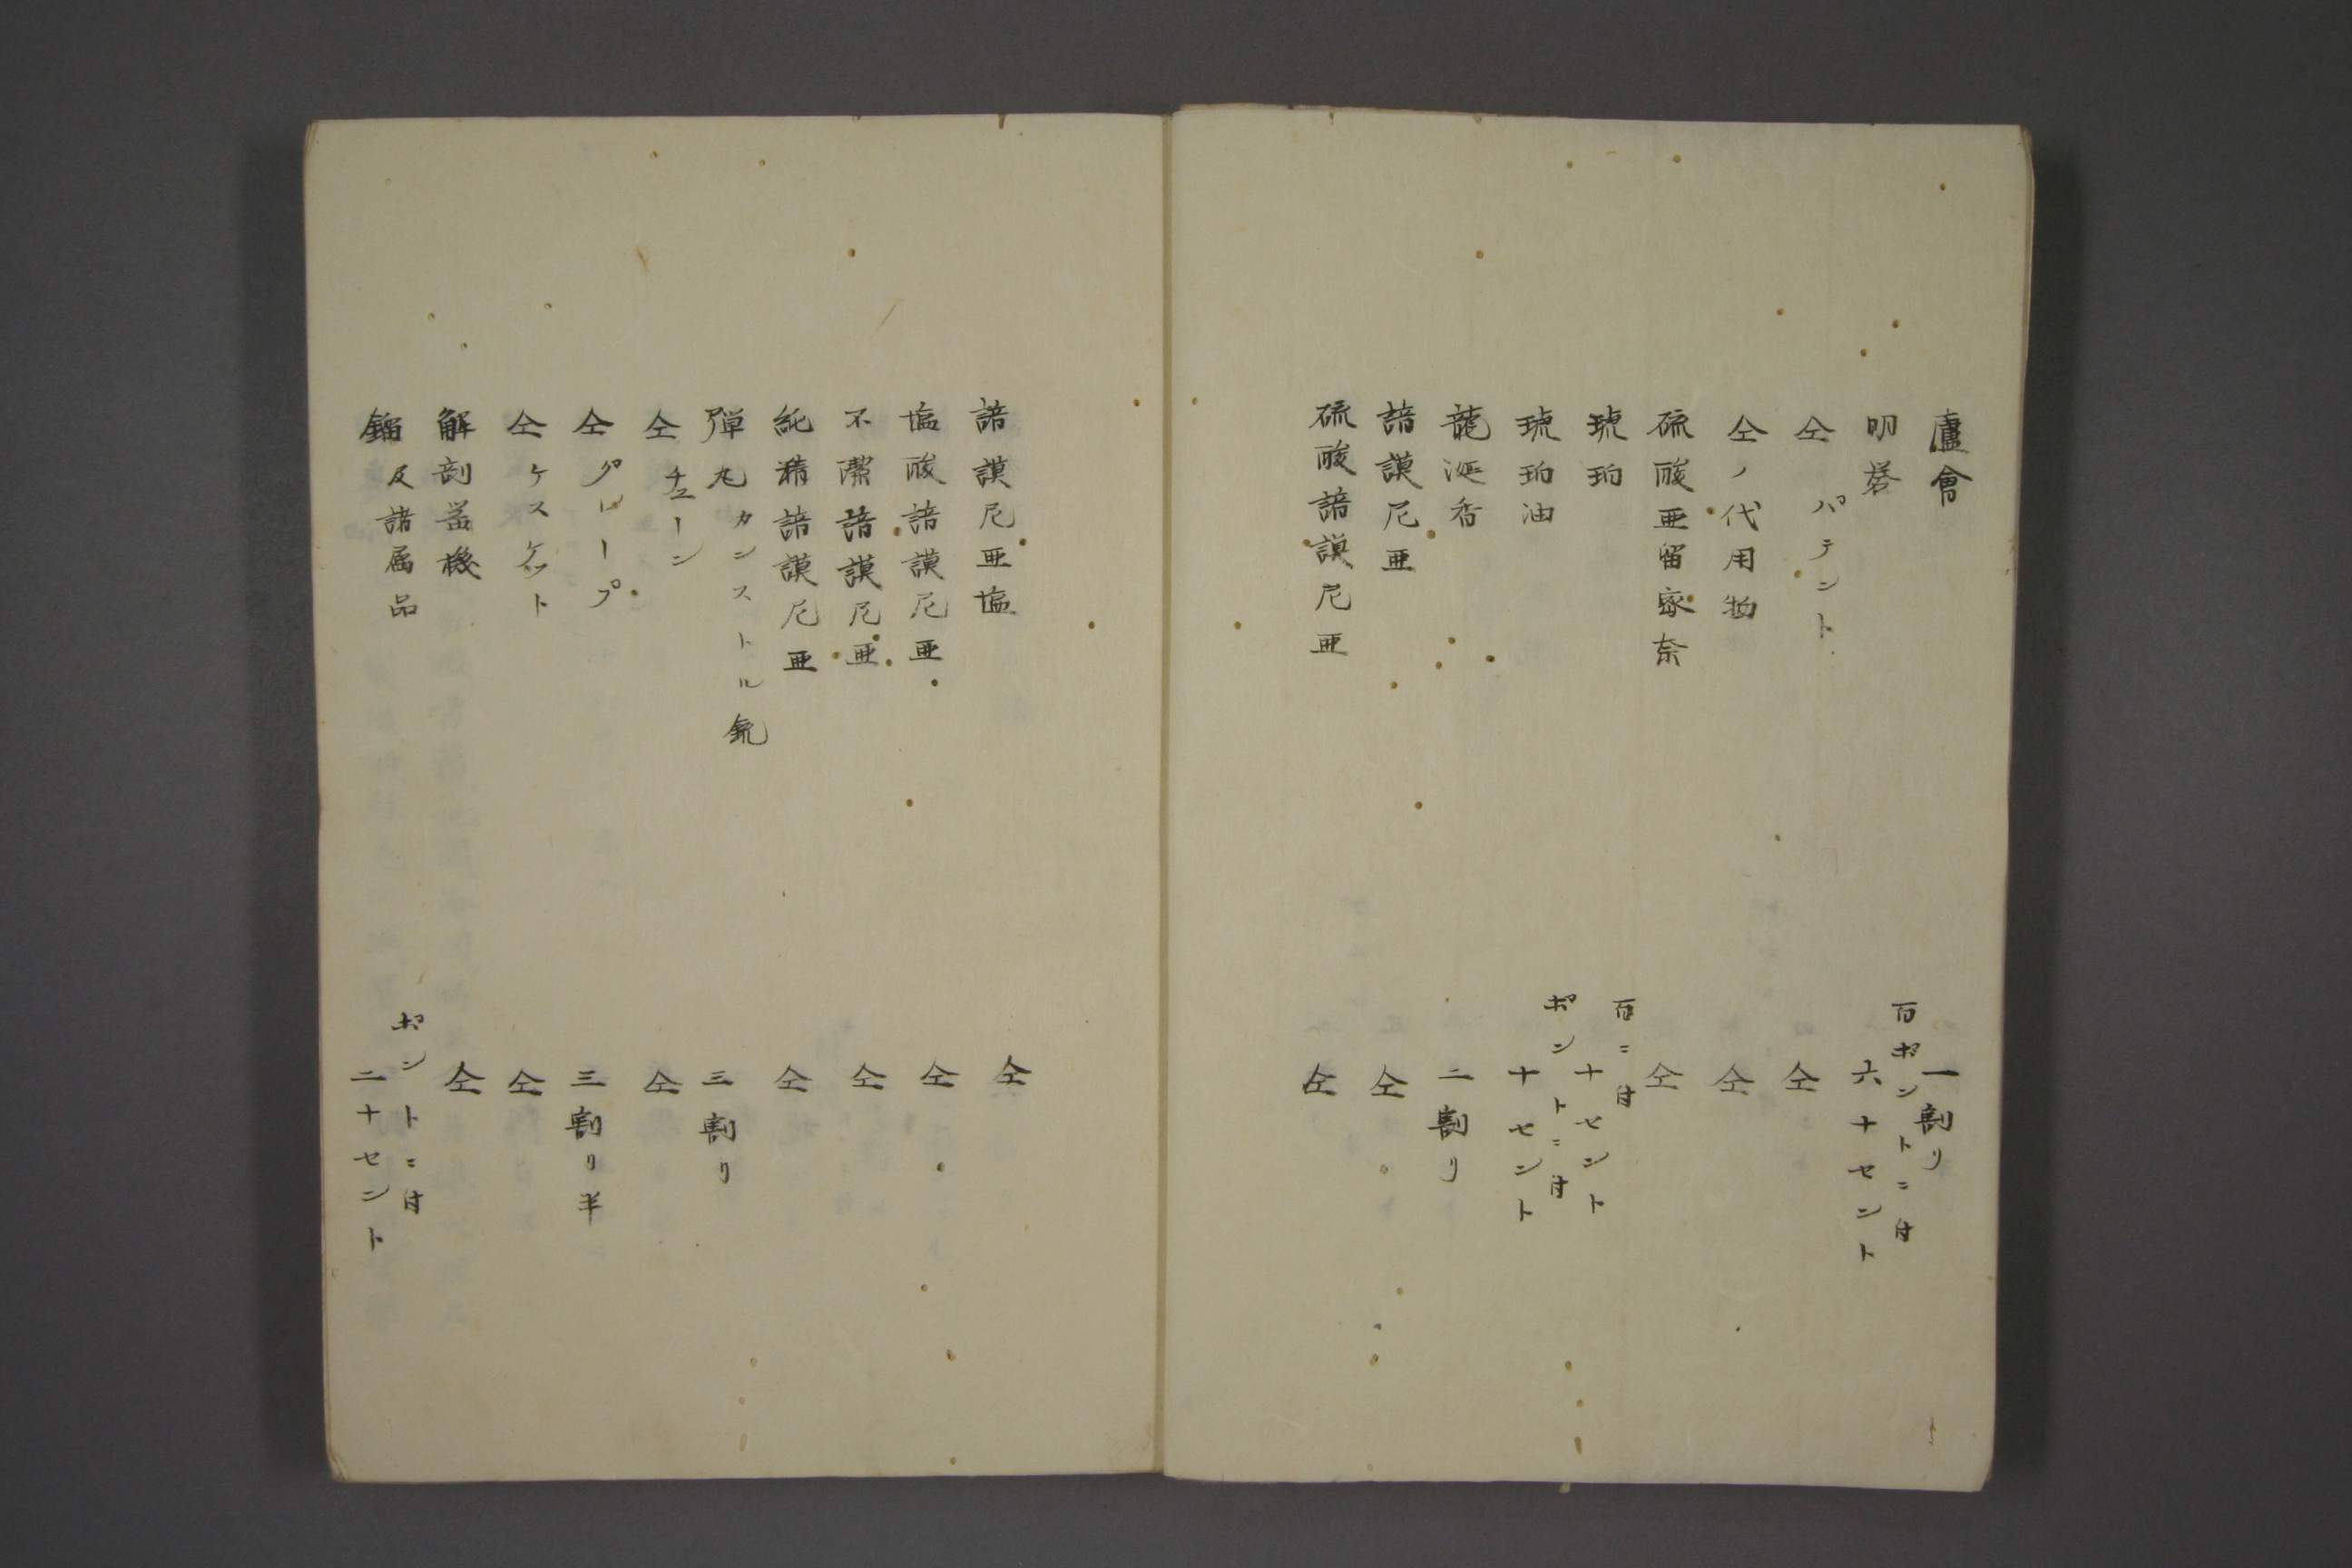 廬會 一割リ
明礬 百ポントニ付六十セント
仝 パテント 仝
仝ノ代用物 仝
硫酸亜留家奈 仝
琥珀 百ニ付十セント
琥珀油 ポントニ付十セント
龍涎香 二割リ
諳謨尼亜 仝
硫酸諳謨尼亜 仝
諳謨尼亜塩 仝
塩酸諳謨尼亜 仝
不潔諳謨尼亜 仝
純精諳謨尼亜 仝
弾丸カンストル銃 三割リ
仝チェーン 仝
仝グレープ 三割リ半
仝ケスケット 仝
解剖器機 仝
錨及諸属品 ポントニ付二十セント